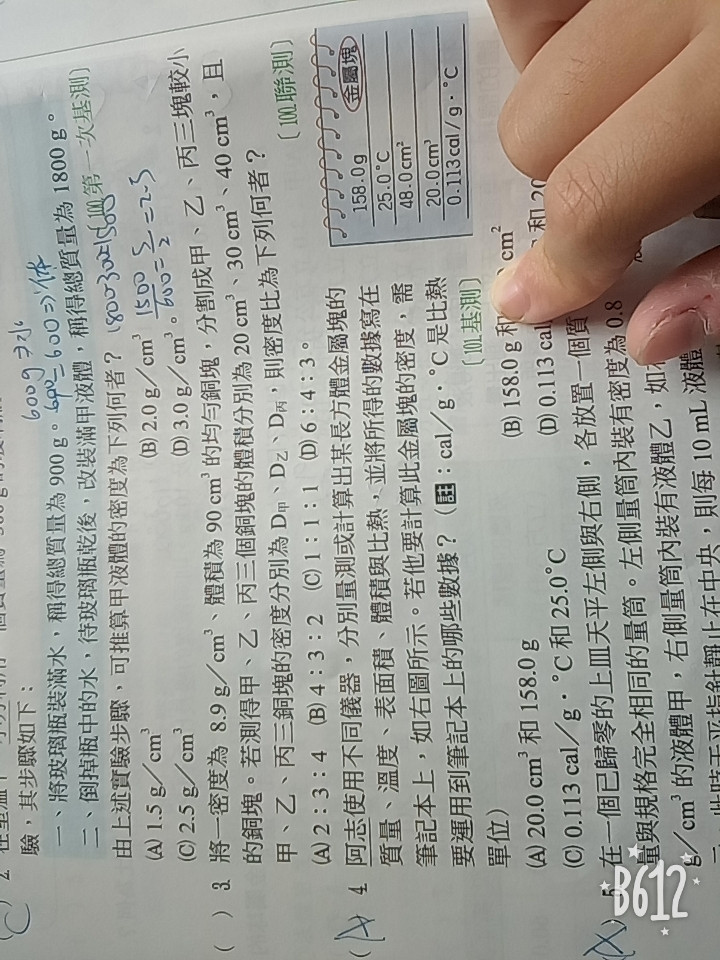 (C) 2.
驗，其步驟如下：
一、將玻璃瓶裝滿水，稱得總質量為 900 g。
二、倒掉瓶中的水，待玻璃瓶乾後，改裝滿甲液體，稱得總質量為 1800 g。
由上述實驗步驟，可推算甲液體的密度為下列何者？
〔100.第一次基測〕
(A) 1.5 g／cm³ (B) 2.0 g／cm³
(C) 2.5 g／cm³ (D) 3.0 g／cm³。
600g
1500
600
=2.5
( ) 3. 將一密度為 8.9 g／cm³、體積為 90 cm³ 的均勻銅塊，分割成甲、乙、丙三塊較小
的銅塊。若測得甲、乙、丙三個銅塊的體積分別為 20 cm³、30 cm³、40 cm³，且
甲、乙、丙三銅塊的密度分別為 D甲、D乙、D丙，則密度比為下列何者？
〔100.聯測〕
(A) 2：3：4 (B) 4：3：2 (C) 1：1：1 (D) 6：4：3。
(A) 4. 阿志使用不同儀器，分別量測或計算出某長方體金屬塊的
質量、溫度、表面積、體積與比熱，並將所得的數據寫在
筆記本上，如右圖所示。若他要計算此金屬塊的密度，需
要運用到筆記本上的哪些數據？（註：cal／g．°C 是比熱
單位） 〔101.基測〕
金屬塊
158.0 g
25.0°C
48.0 cm²
20.0 cm³
0.113 cal/g．°C
(A) 20.0 cm³ 和 158.0 g (B) 158.0 g 和 cm²
(C) 0.113 cal／g．°C 和 25.0°C (D) 0.113 cal 和 20
5. 在一個已歸零的上皿天平左側與右側，各放置一個質
量與規格完全相同的量筒。左側量筒內裝有密度為 0.8
g／cm³ 的液體甲，右側量筒內裝有液體乙，如
此時天平指針靜止在中央，則每 10 mL 液體
B612